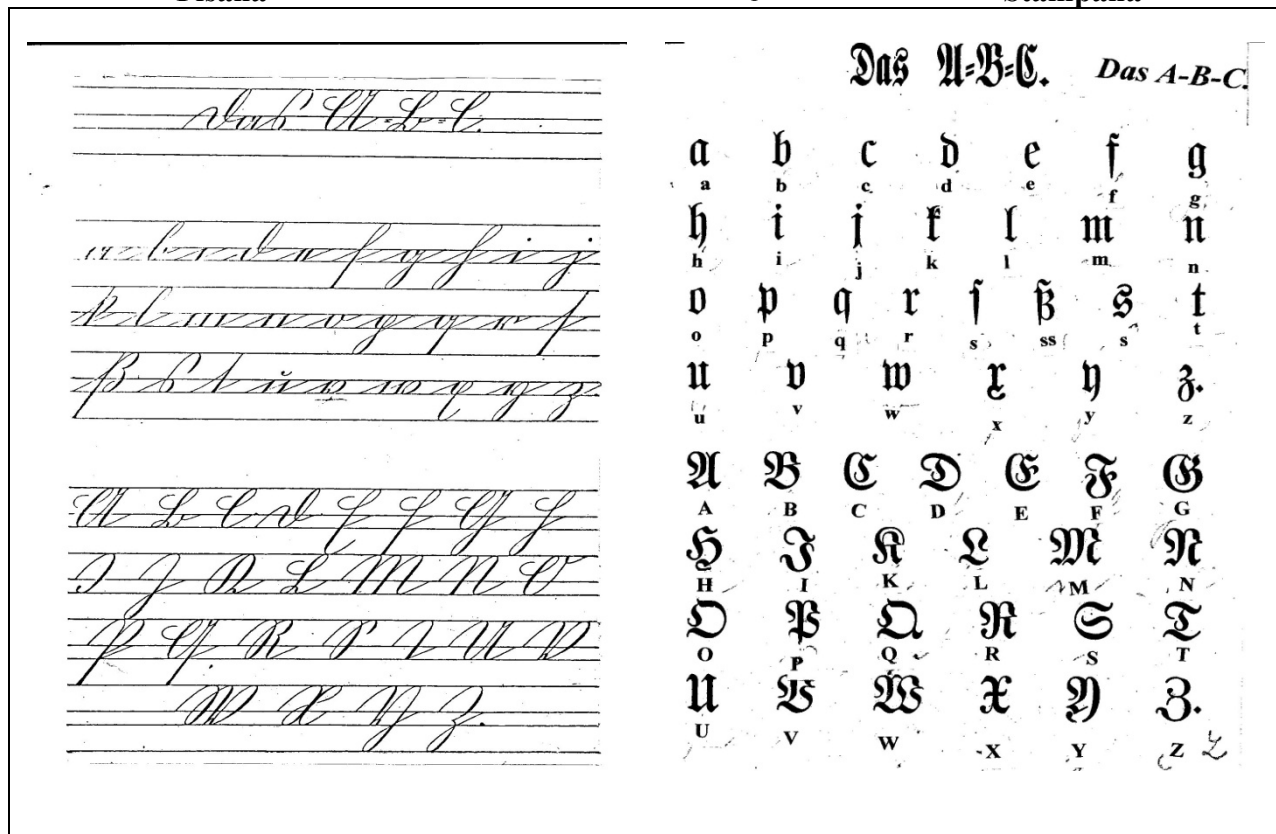 Das A=B=C.
a b c d e f g h i j
k l m n o p q r ſ
ß s t u v w x y z.
A B C D E F G H
I J K L M N O
P Q R S T U V
W X Y Z.
Das A=B=C. Das A-B-C.
a b c d e f g
a b c d e f g
h i j k l m n
h i j k l m n
o p q r ſ ß s t
o p q r s ss s t
u v w x y z.
u v w x y z
A B C D E F G
A B C D E F G
H I K L M N
H I K L M N
O P Q R S T
O P Q R S T
U V W X Y Z.
U V W X Y Z